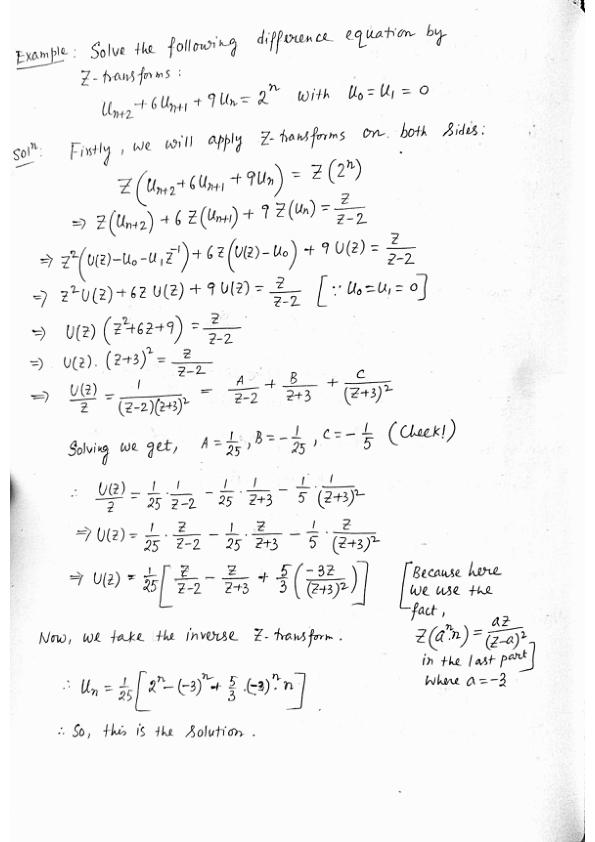 Example: Solve the following difference equation by
Z-transforms:
Uₙ₊₂ + 6Uₙ₊₁ + 9Uₙ = 2ⁿ with U₀ = U₁ = 0
Solⁿ: Firstly, we will apply Z-transforms on both sides:
Z(Uₙ₊₂ + 6Uₙ₊₁ + 9Uₙ) = Z(2ⁿ)
⇒ Z(Uₙ₊₂) + 6 Z(Uₙ₊₁) + 9 Z(Uₙ) = z/(z-2)
⇒ z²(U(z) - U₀ - U₁z⁻¹) + 6z(U(z) - U₀) + 9 U(z) = z/(z-2)
⇒ z²U(z) + 6z U(z) + 9 U(z) = z/(z-2) [∵ U₀ = U₁ = 0]
⇒ U(z) (z²+6z+9) = z/(z-2)
⇒ U(z). (z+3)² = z/(z-2)
⇒ U(z)/z = 1/((z-2)(z+3)²) = A/(z-2) + B/(z+3) + C/(z+3)²
Solving we get, A = 1/25, B = -1/25, C = -1/5 (Check!)
∴ U(z)/z = 1/25 · 1/(z-2) - 1/25 · 1/(z+3) - 1/5 · 1/(z+3)²
⇒ U(z) = 1/25 · z/(z-2) - 1/25 · z/(z+3) - 1/5 · z/(z+3)²
⇒ U(z) = 1/25 [z/(z-2) - z/(z+3) + 5/3 (-3z/(z+3)²)]
[Because here
we use the
fact,
Z(aⁿ·n) = az/(z-a)²
in the last part]
where a = -3
Now, we take the inverse Z-transform.
∴ Uₙ = 1/25 [2ⁿ - (-3)ⁿ + 5/3 ·(-3)ⁿ· n]
∴ So, this is the solution.